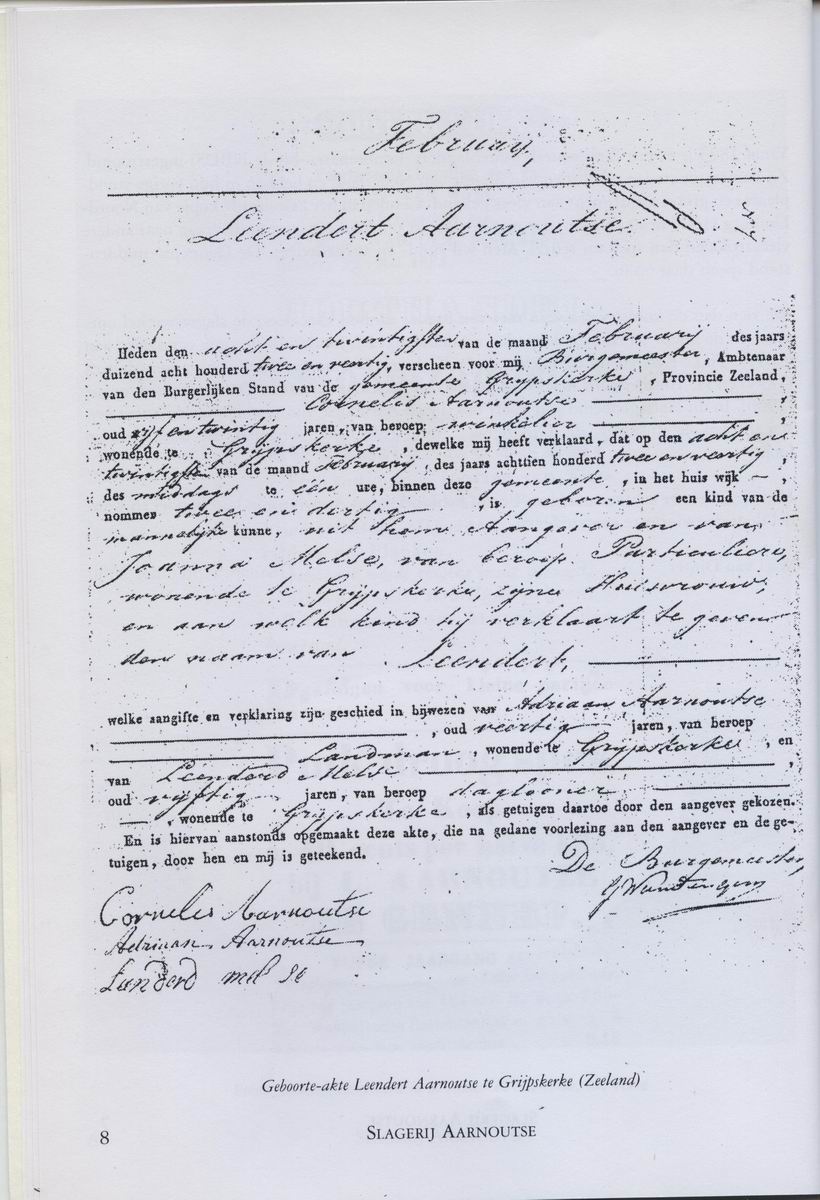 Februarij,
Leendert Aarnoutse.
Heden den acht en twintigsten van de maand Februarij des jaars
duizend acht honderd twee en veertig, verscheen voor mij Burgemeester, Ambtenaar
van den Burgerlijken Stand van de gemeente Grijpskerke, Provincie Zeeland,
Cornelis Aarnoutse,
oud vijf en twintig jaren, van beroep winkelier,
wonende te Grijpskerke, dewelke mij heeft verklaard, dat op den acht en
twintigsten van de maand Februarij, des jaars achttien honderd twee en veertig,
des middags te één ure, binnen deze gemeente, in het huis wijk —,
nommer twee en dertig, is geboren een kind van de
mannelijke kunne, uit hem Aangever en van
Joanna Melse, van beroep Particuliere,
wonende te Grijpskerke, zijne Huisvrouw,
en aan welk kind hij verklaart te geven
den naam van Leendert,
welke aangifte en verklaring zijn geschied in bijwezen van Adriaan Aarnoutse
, oud veertig jaren, van beroep
Landman, wonende te Grijpskerke, en
van Leenderd Melse,
oud vijftig jaren, van beroep daglooner
—, wonende te Grijpskerke, als getuigen daartoe door den aangever gekozen.
En is hiervan aanstonds opgemaakt deze akte, die na gedane voorlezing aan den aangever en de ge-
tuigen, door hen en mij is geteekend.
De Burgemeester,
Cornelis Aarnoutse
Adriaan Aarnoutse
Leenderd mel se
Geboorte-akte Leendert Aarnoutse te Grijpskerke (Zeeland)
8 SLAGERIJ AARNOUTSE